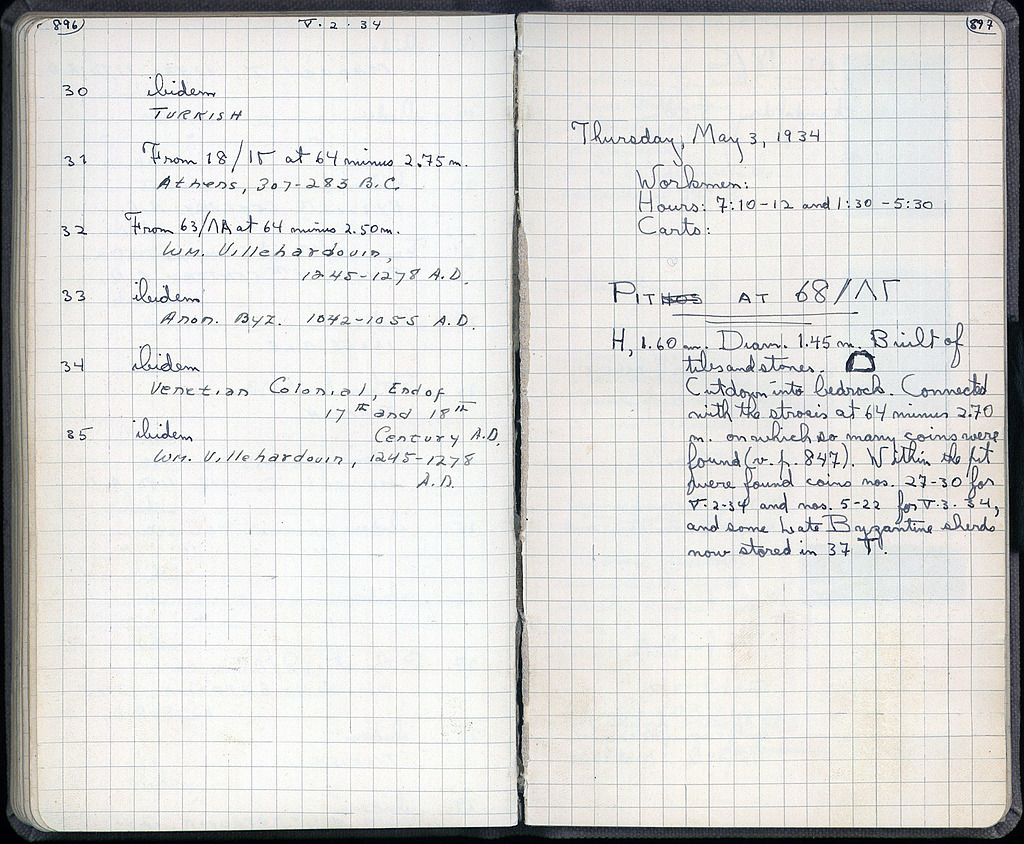 896
V · 2 · 34
30 ibidem
TURKISH
31 From 18/ΙΓ at 64 minus 2.75 m.
Athens, 307-283 B.C.
32 From 63/ΛΑ at 64 minus 2.50 m.
Wm. Villehardouin,
1245-1278 A.D.
33 ibidem
Anon. Byz. 1042-1055 A.D.
34 ibidem
Venetian Colonial, End of
17th and 18th
Century A.D.
35 ibidem
Wm. Villehardouin, 1245-1278
A.D.
897
Thursday, May 3, 1934
Workmen:
Hours: 7:10-12 and 1:30-5:30
Carts:
PIT AT 68/ΛΓ
H, 1.60 m. Diam. 1.45 m. Built of
tiles and stones.
Cut down into bedrock. Connected
with the strosis at 64 minus 2.70
m. on which so many coins were
found (v. p. 847). Within the pit
were found coins nos. 27-30 for
V·2·34 and nos. 5-22 for V·3·34,
and some Late Byzantine sherds
now stored in 37 Π.